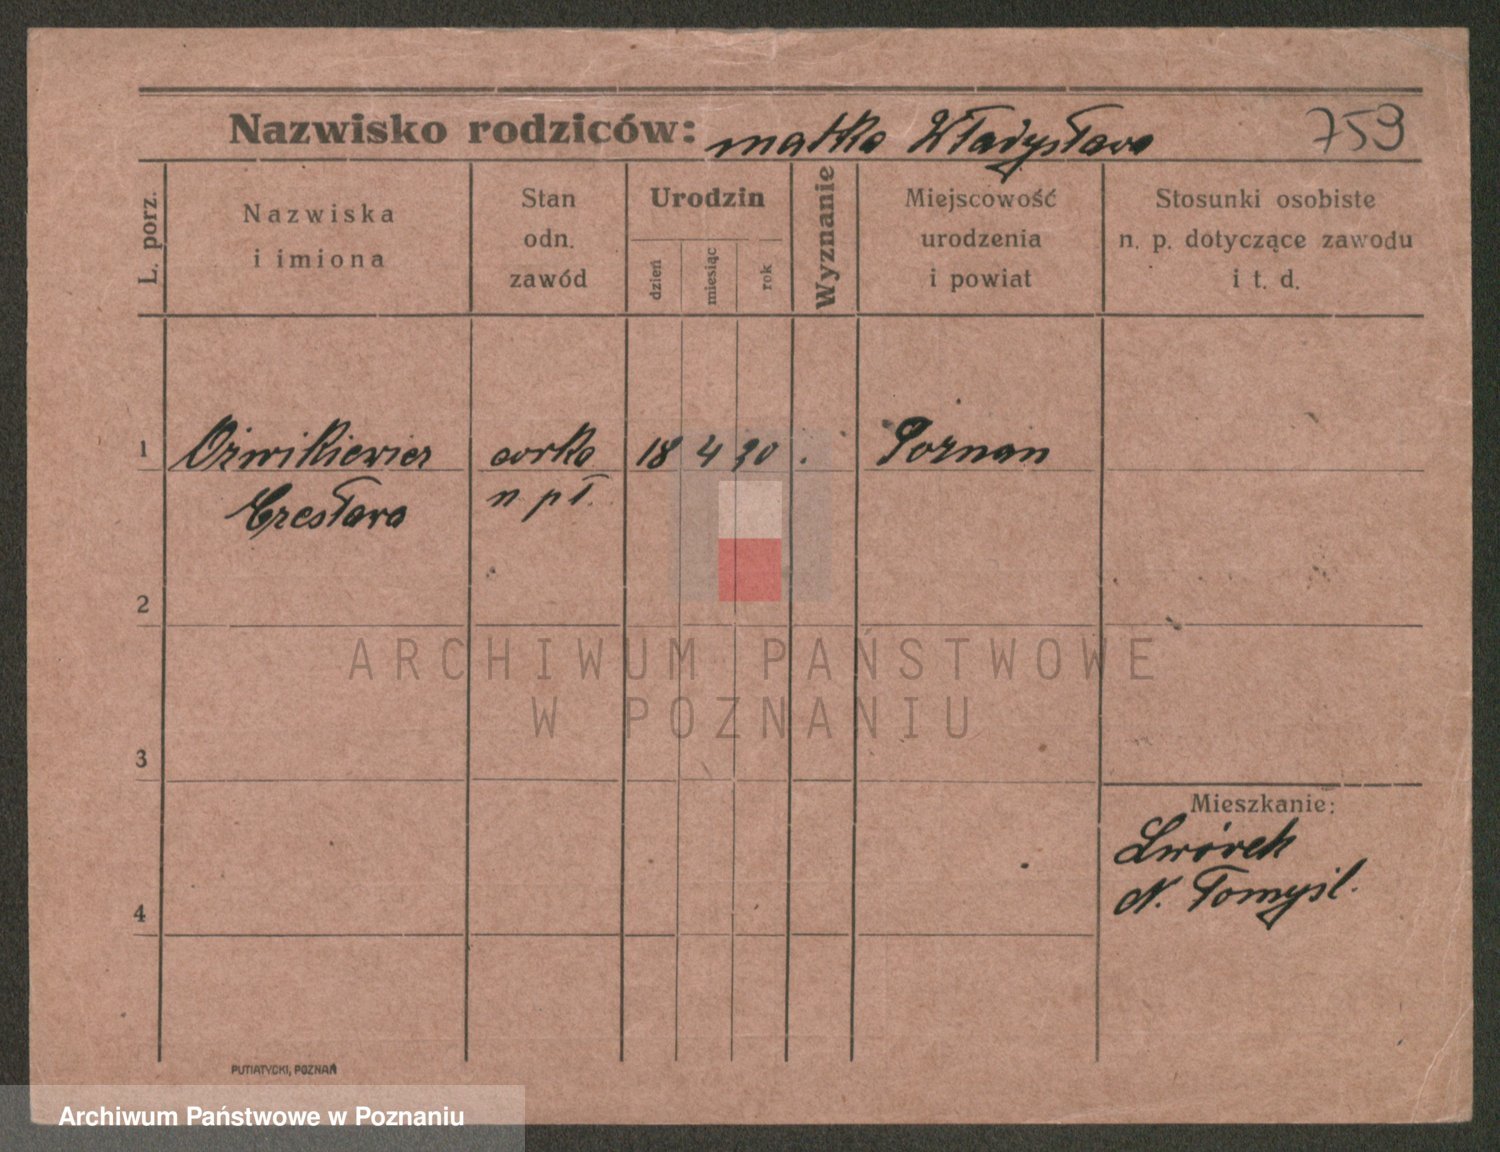 Nazwisko rodziców: matka Władysława 759
L. porz.
Nazwiska
i imiona
Stan
odn.
zawód
Urodzin
dzień
miesiąc
rok
Wyznanie
Miejscowość
urodzenia
i powiat
Stosunki osobiste
n. p. dotyczące zawodu
i t. d.
1 corka 18 4 30 . Poznan
Czesława n pł.
2
ARCHIWUM PAŃSTWOWE
W POZNANIU
3
Mieszkanie:
Lwówek
N. Tomyśl.
4
PUTIATYCKI, POZNAŃ
Archiwum Państwowe w Poznaniu